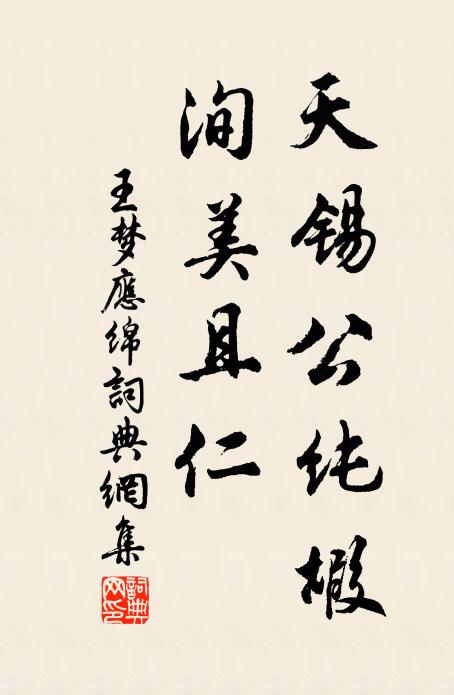 天锡公纯嘏
洵美且仁
王梦應绵詞典網集
詞典
网印